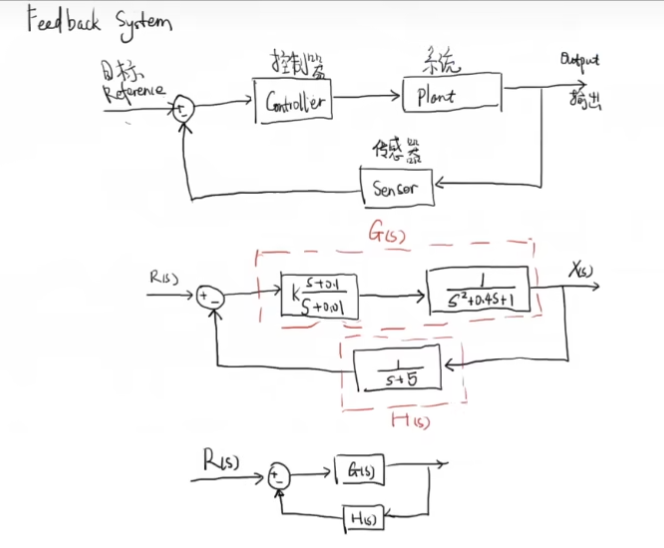 Feedback System
目标
Reference
+
-
控制器
Controller
系统
Plant
Output
输出
传感器
Sensor
G(s)
R(s)
+
-
K (s+0.1)/(s+0.01)
1/(s²+0.4s+1)
X(s)
1/(s+5)
H(s)
R(s)
+
-
G(s)
H(s)